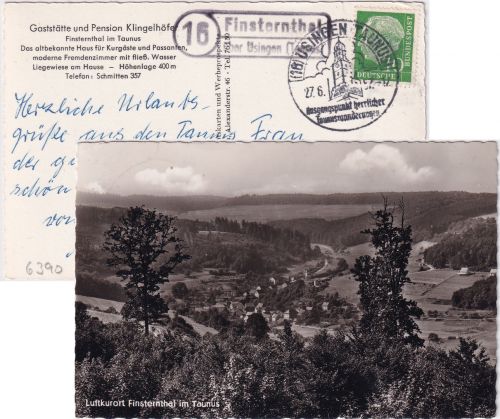 Gaststätte und Pension Klingelhöfer
Finsternthal im Taunus
Das altbekannte Haus für Kurgäste und Passanten,
moderne Fremdenzimmer mit fließ. Wasser
Liegewiese am Hause – Höhenlage 400 m
Telefon: Schmitten 357
16
Finsternthal
über Usingen (Taunus)
(16) USINGEN (TAUNUS)
27.6.
Ausgangspunkt herrlicher
Taunuswanderungen
DEUTSCHE
BUNDESPOST
10
Alexanderstr. 46 - Tel.
Herzliche Urlaubs-
grüße aus den Taunus
der
schön
von
6390
Luftkurort Finsternthal im Taunus